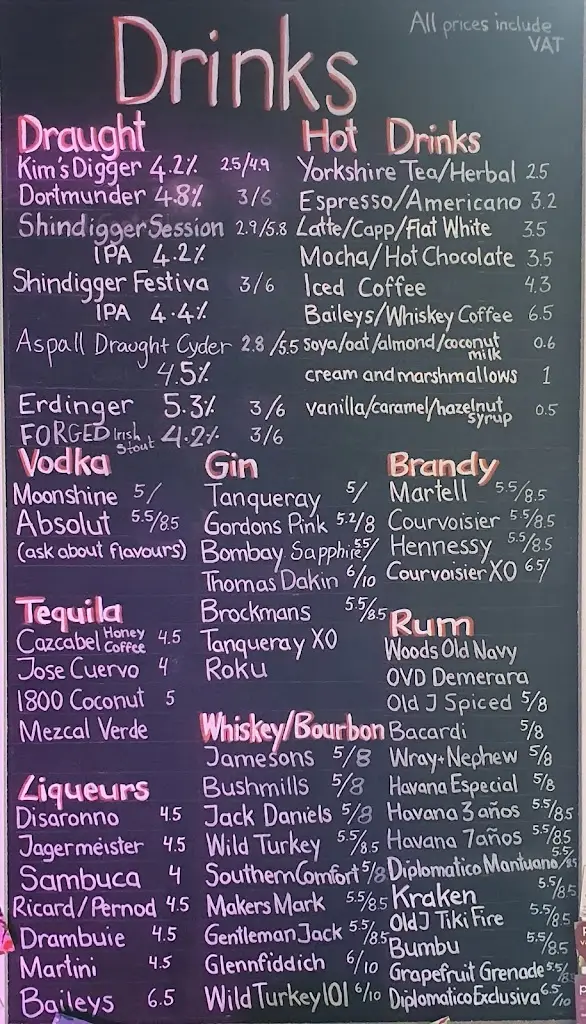 All prices include
VAT
Drinks
Draught
Kim's Digger 4.2% 2.5/4.9
Dortmunder 4.8% 3/6
Shindigger Session 2.9/5.8
IPA 4.2%
Shindigger Festiva 3/6
IPA 4.4%
Aspall Draught Cyder 2.8/5.5
4.5%
Erdinger 5.3% 3/6
FORGED Irish Stout 4.2% 3/6
Hot Drinks
Yorkshire Tea/Herbal 2.5
Espresso/Americano 3.2
Latte/Capp/Flat White 3.5
Mocha/Hot Chocolate 3.5
Iced Coffee 4.3
Baileys/Whiskey Coffee 6.5
soya/oat/almond/coconut milk 0.6
cream and marshmallows 1
vanilla/caramel/hazelnut syrup 0.5
Vodka
Moonshine 5/
Absolut 5.5/8.5
(ask about flavours)
Tequila
Cazcabel Honey Coffee 4.5
Jose Cuervo 4
1800 Coconut 5
Mezcal Verde
Liqueurs
Disaronno 4.5
Jagermeister 4.5
Sambuca 4
Ricard/Pernod 4.5
Drambuie 4.5
Martini 4.5
Baileys 6.5
Gin
Tanqueray 5/
Gordons Pink 5.2/8
Bombay Sapphire
Thomas Dakin 6/10
Brockmans 5.5/8.5
Tanqueray XO
Roku
Whiskey/Bourbon
Jamesons 5/8
Bushmills 5/8
Jack Daniels 5/8
Wild Turkey 5.5/8.5
Southern Comfort 5/8
Makers Mark 5.5/8.5
Gentleman Jack 5.5/8.5
Glennfiddich 6/10
Wild Turkey 101 6/10
Brandy
Martell 5.5/8.5
Courvoisier 5.5/8.5
Hennessy 5.5/8.5
Courvoisier XO 6.5/
Rum
Woods Old Navy
OVD Demerara
Old J Spiced 5/8
Bacardi 5/8
Wray+Nephew 5/8
Havana Especial 5/8
Havana 3 años 5.5/8.5
Havana 7 años 5.5/8.5
Diplomatico Mantuano 5.5/8.5
Kraken 5.5/8.5
Old J Tiki Fire 5.5/8.5
Bumbu 5.5/8.5
Grapefruit Grenade 5.5/8.5
Diplomatico Exclusiva 6.5/10